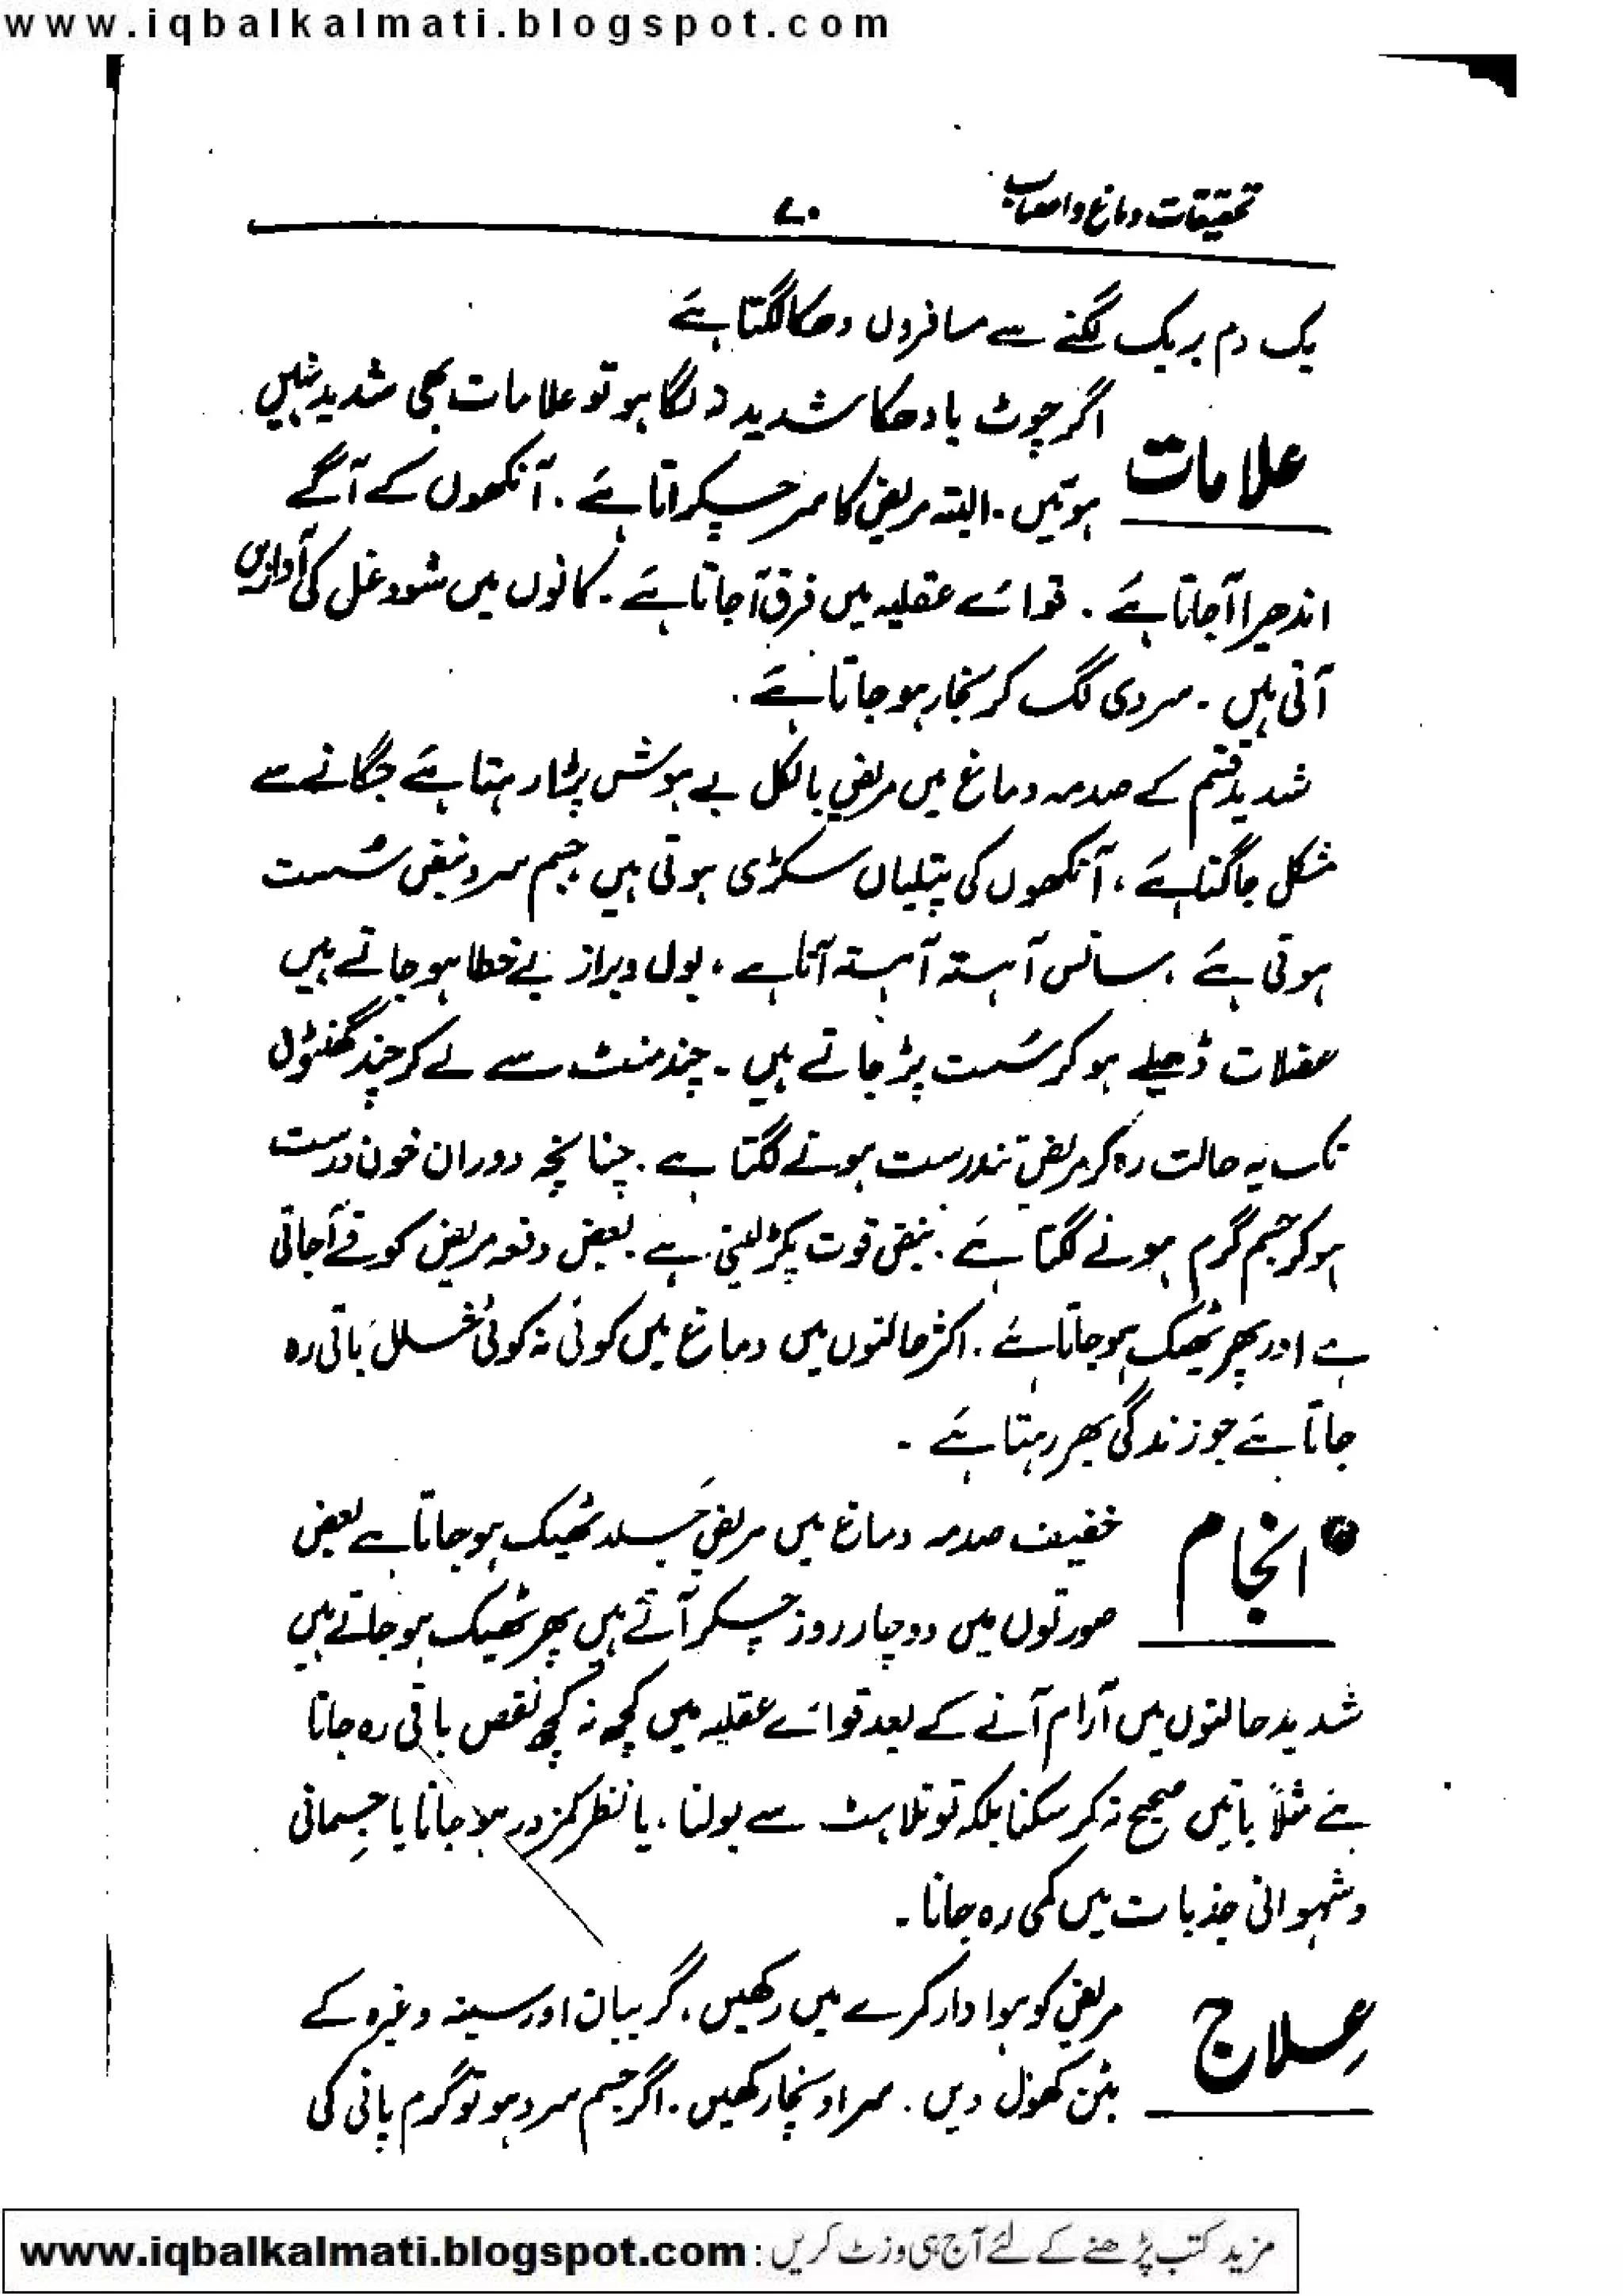 www.iqbalkalmati.blogspot.com
تحقیقات دماغ و اعصاب
۷۰
یک دم بریک لگنے سے مسافروں دھکا لگتا ہے
علامات
اگر چوٹ یا دھکا شدید نہ لگا ہو تو علامات بھی شدید نہیں
ہوتیں۔ البتہ مریض کا سر چکراتا ہے۔ آنکھوں کے آگے
اندھیرا آجاتا ہے۔ قوائے عقلیہ میں فرق آجاتا ہے۔ کانوں میں شور وغل کی آوازیں
آتی ہیں۔ سردی لگ کر بخار ہو جاتا ہے۔
شدید قسم کے صدمہ دماغ میں مریض بالکل بے ہوش پڑا رہتا ہے جگانے سے
مشکل جاگتا ہے، آنکھوں کی پتلیاں سکڑی ہوتی ہیں جسم سرد نبض سُست
ہوتی ہے، سانس آہستہ آہستہ آتا ہے، بول و براز بے خطا ہو جاتے ہیں
عضلات ڈھیلے ہو کر سُست پڑ جاتے ہیں۔ چند منٹ سے لے کر چند گھنٹوں
تک یہ حالت رہ کر مریض تندرست ہونے لگتا ہے۔ چنانچہ دوران خون درست
ہو کر جسم گرم ہونے لگتا ہے۔ نبض قوت پکڑ لیتی ہے۔ بعض دفعہ مریض کو قے آجاتی
ہے اور پھر ٹھیک ہو جاتا ہے۔ اکثر حالتوں میں دماغ میں کوئی نہ کوئی خلل باقی رہ
جاتا ہے جو زندگی بھر رہتا ہے۔
انجام
خفیف صدمہ دماغ میں مریض جلد ٹھیک ہو جاتا ہے بعض
صورتوں میں دو چار روز چکر آتے ہیں پھر ٹھیک ہو جاتے ہیں
شدید حالتوں میں آرام آنے کے بعد قوائے عقلیہ میں کچھ نہ کچھ نقص باقی رہ جاتا
ہے مثلاً باتیں صحیح نہ کر سکنا بلکہ توتلاہٹ سے بولنا، یا نظر کمزور ہو جانا یا جسمانی
و شہوانی جذبات میں کمی رہ جانا۔
عِلاج
مریض کو ہوا دار کمرے میں رکھیں، گریبان اور سینہ وغیرہ کے
بٹن کھول دیں۔ سر اونچا رکھیں۔ اگر جسم سرد ہو تو گرم پانی کی
مزید کتب پڑھنے کے لئے آج ہی وزٹ کریں : www.iqbalkalmati.blogspot.com